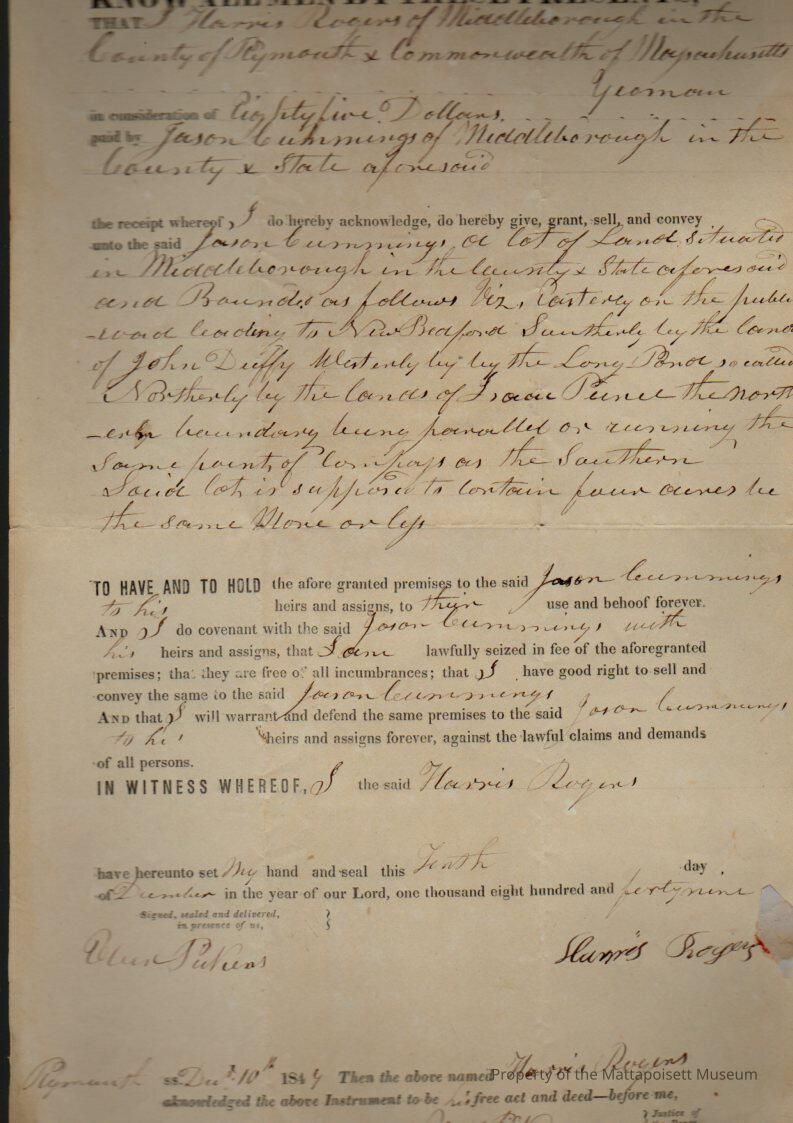 KNOW ALL MEN BY THESE PRESENTS,
THAT I Harris Rogers of Middleborough in the
County of Plymouth & Commonwealth of Massachusetts
Yeoman
in consideration of Eightyfive Dollars
paid by Jason Cummings of Middleborough in the
County & State aforesaid
the receipt whereof, I do hereby acknowledge, do hereby give, grant, sell, and convey
unto the said Jason Cummings a lot of Land situated
in Middleborough in the County & State aforesaid
and Bounded as follows Viz, Easterly on the publi
-road leading to New Bedford Southerly by the land
of John Duffy Westerly by by the Long Pond so called
Northerly by the lands of Isaac the north
-erly boundary being parallel or running the
same point of Compass as the Southern
Said lot is supposed to contain four acres be
the same More or less
TO HAVE AND TO HOLD the afore granted premises to the said Jason Cummings
to his heirs and assigns, to their use and behoof forever.
AND I do covenant with the said Jason Cummings with
his heirs and assigns, that I am lawfully seized in fee of the aforegranted
premises; that they are free of all incumbrances; that I have good right to sell and
convey the same to the said Jason Cummings
AND that I will warrant and defend the same premises to the said Jason Cummings
to his heirs and assigns forever, against the lawful claims and demands
of all persons.
IN WITNESS WHEREOF, I the said Harris Rogers
have hereunto set My hand and seal this Tenth day
of December in the year of our Lord, one thousand eight hundred and fortynine
Signed, sealed and delivered,
in presence of us,
Pickens Harris Rogers
Plymouth ss. Dec. 10th 1849 Then the above named Harris Rogers
Property of the Mattapoisett Museum
aknowledged the above Instrument to be his free act and deed—before me,
Justice of